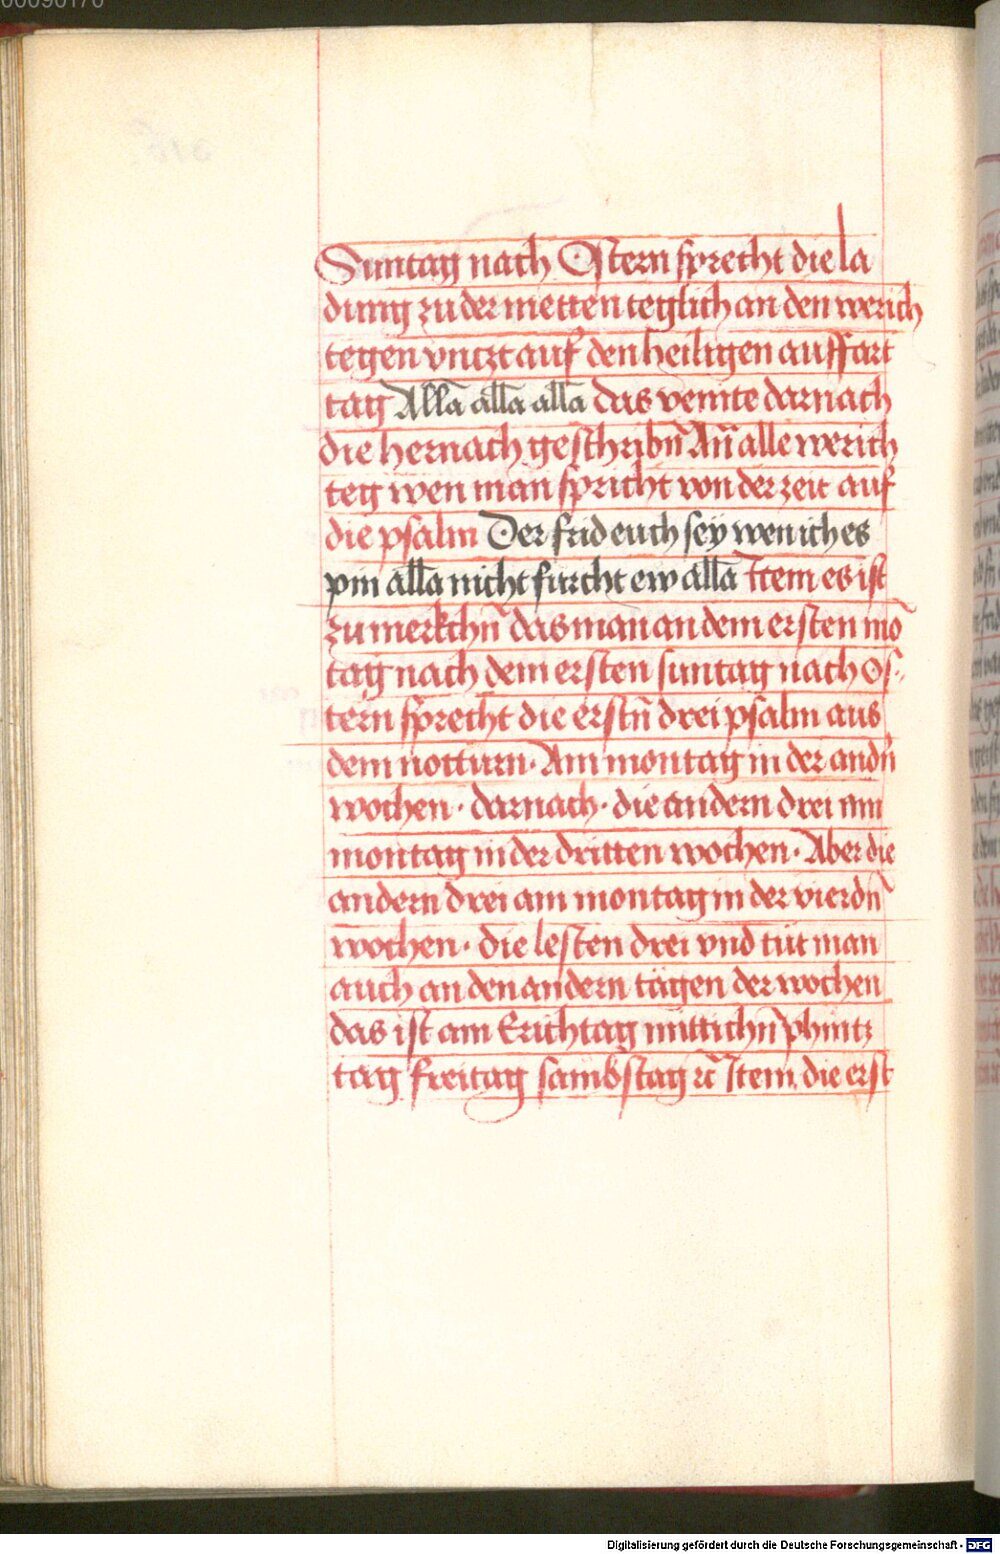 00090170
Suntag nach Ostern sprecht die la
dung zu der metten teglich an den werich
tegen vntzt auf den heiligen auffart
tag Alla̅ alla̅ alla̅ das venite darnach
die hernach geschribn̅ An̅ alle werich
teg wen man spricht von der zeit auf
die psalm Der frid euch sey wen ich es
pin alla̅ nicht furcht ew alla̅ Item es ist
zu merkchn̅ das man an dem ersten mo̅
tag nach dem ersten suntag nach Os⸗
tern sprecht die erstn̅ drei psalm aus
dem notturn· Am montag in der andn̅
wochen· darnach· die andern drei am
montag in der dritten wochen· Aber die
andern drei am montag in der vierdn̅
wochen· die lesten drei vnd tut man
auch an den andern tägen der wochen
das ist am Erichtag mittichn̅ phintz
tag freitag sambstag ꝛc̅ Item die erst
Digitalisierung gefördert durch die Deutsche Forschungsgemeinschaft - DFG